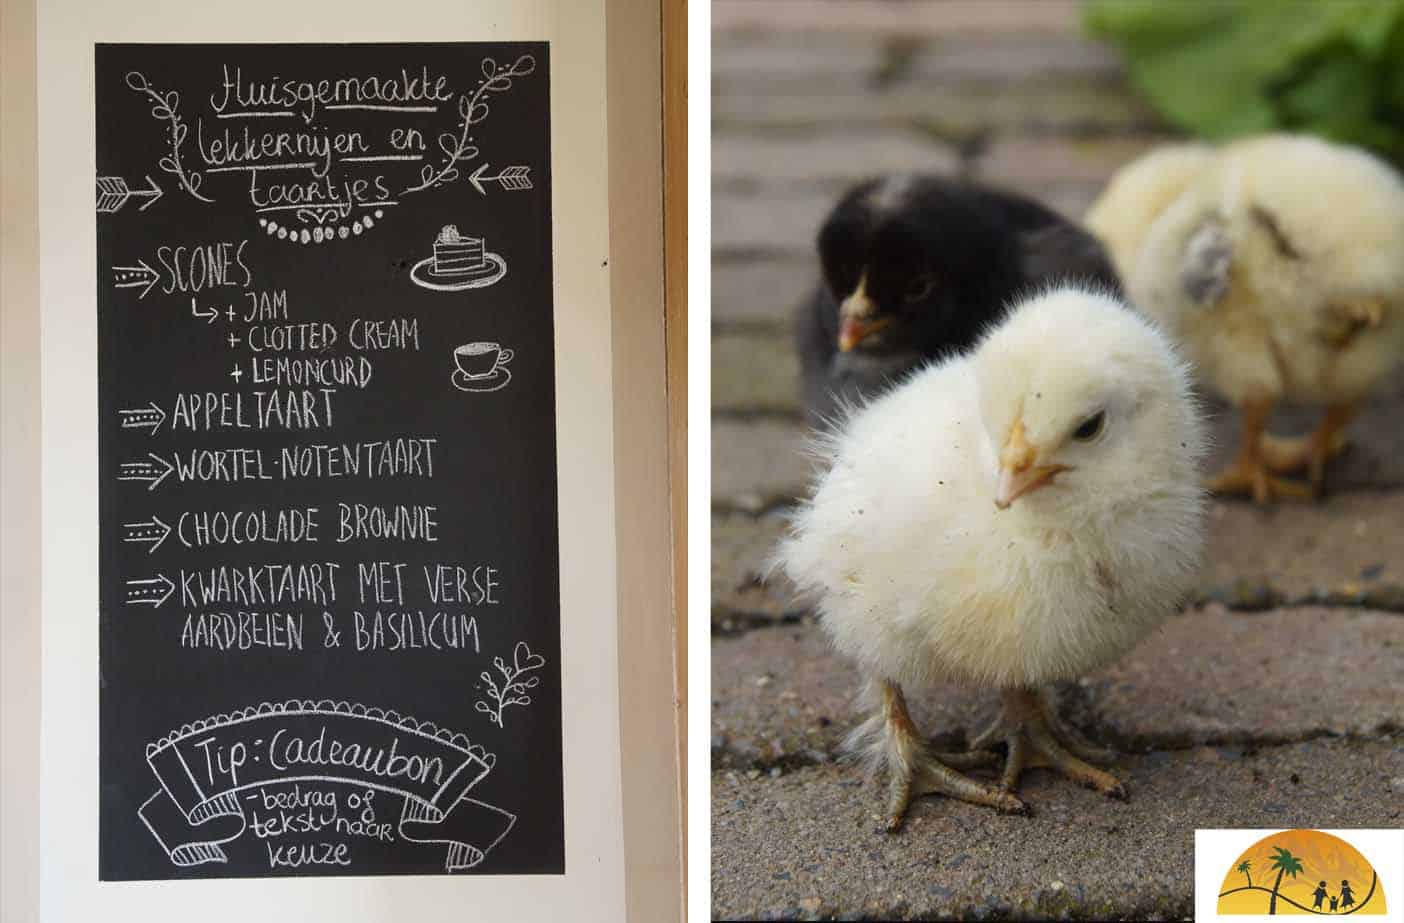 Huisgemaakte
lekkernijen en
taartjes
SCONES
+ JAM
+ CLOTTED CREAM
+ LEMONCURD
APPELTAART
WORTEL-NOTENTAART
CHOCOLADE BROWNIE
KWARKTAART MET VERSE
AARDBEIEN & BASILICUM
Tip: Cadeaubon
- bedrag of
tekst naar
keuze